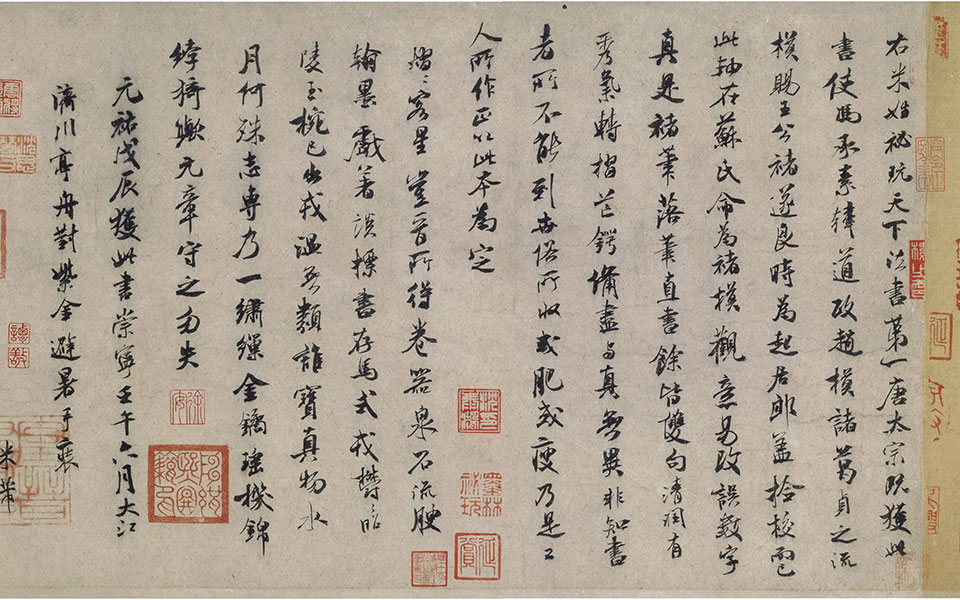 右米姓祕玩天下法書第一唐太宗既獲此
書使馮承素韓道政趙模諸葛貞之流
模賜王公褚遂良時為起居郎蓋撿校而已
此軸在蘇氏命為褚模觀意易改誤數字
真是褚筆落筆直書餘皆雙句清潤有
秀氣轉摺芒鍔備盡與真無異非知書
者所不能到世俗所收或肥或瘦乃是工
人所作正以此本為定
熠〻客星豈晉所得養器泉石流腴
翰墨戲著談標書存焉式鬱〻昭
陵玉椀已出戎溫無類誰寶真物水
月何殊志專乃一繡繅金鐍瑤機錦
綍猗歟元章守之勿失
元祐戊辰獲此書崇寧壬午六月大江
濟川亭舟對紫金避暑手裝
米芾
墨林祕玩
譚敬